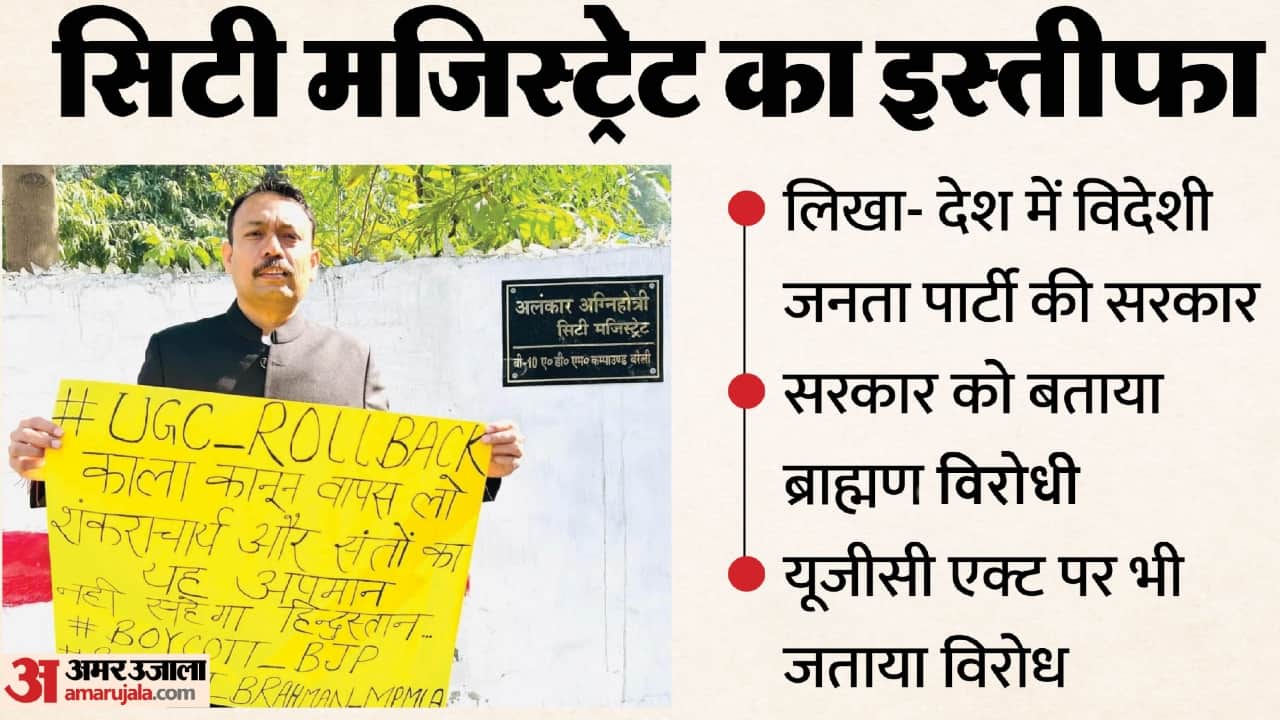 सिटी मजिस्ट्रेट का इस्तीफा
लिखा- देश में विदेशी
जनता पार्टी की सरकार
सरकार को बताया
ब्राह्मण विरोधी
यूजीसी एक्ट पर भी
जताया विरोध
अलंकार अग्निहोत्री
सिटी मजिस्ट्रेट
बी-10 ए० डी० एम० कम्पाउण्ड बरेली
#UGC_ROLLBACK
काला कानून वापस लो
शंकराचार्य और संतों का
यह अपमान
नही सहेगा हिन्दुस्तान...
#BOYCOTT_BJP
_BRAHMAN_MPMLA
अ अमर उजाला
amarujala.com